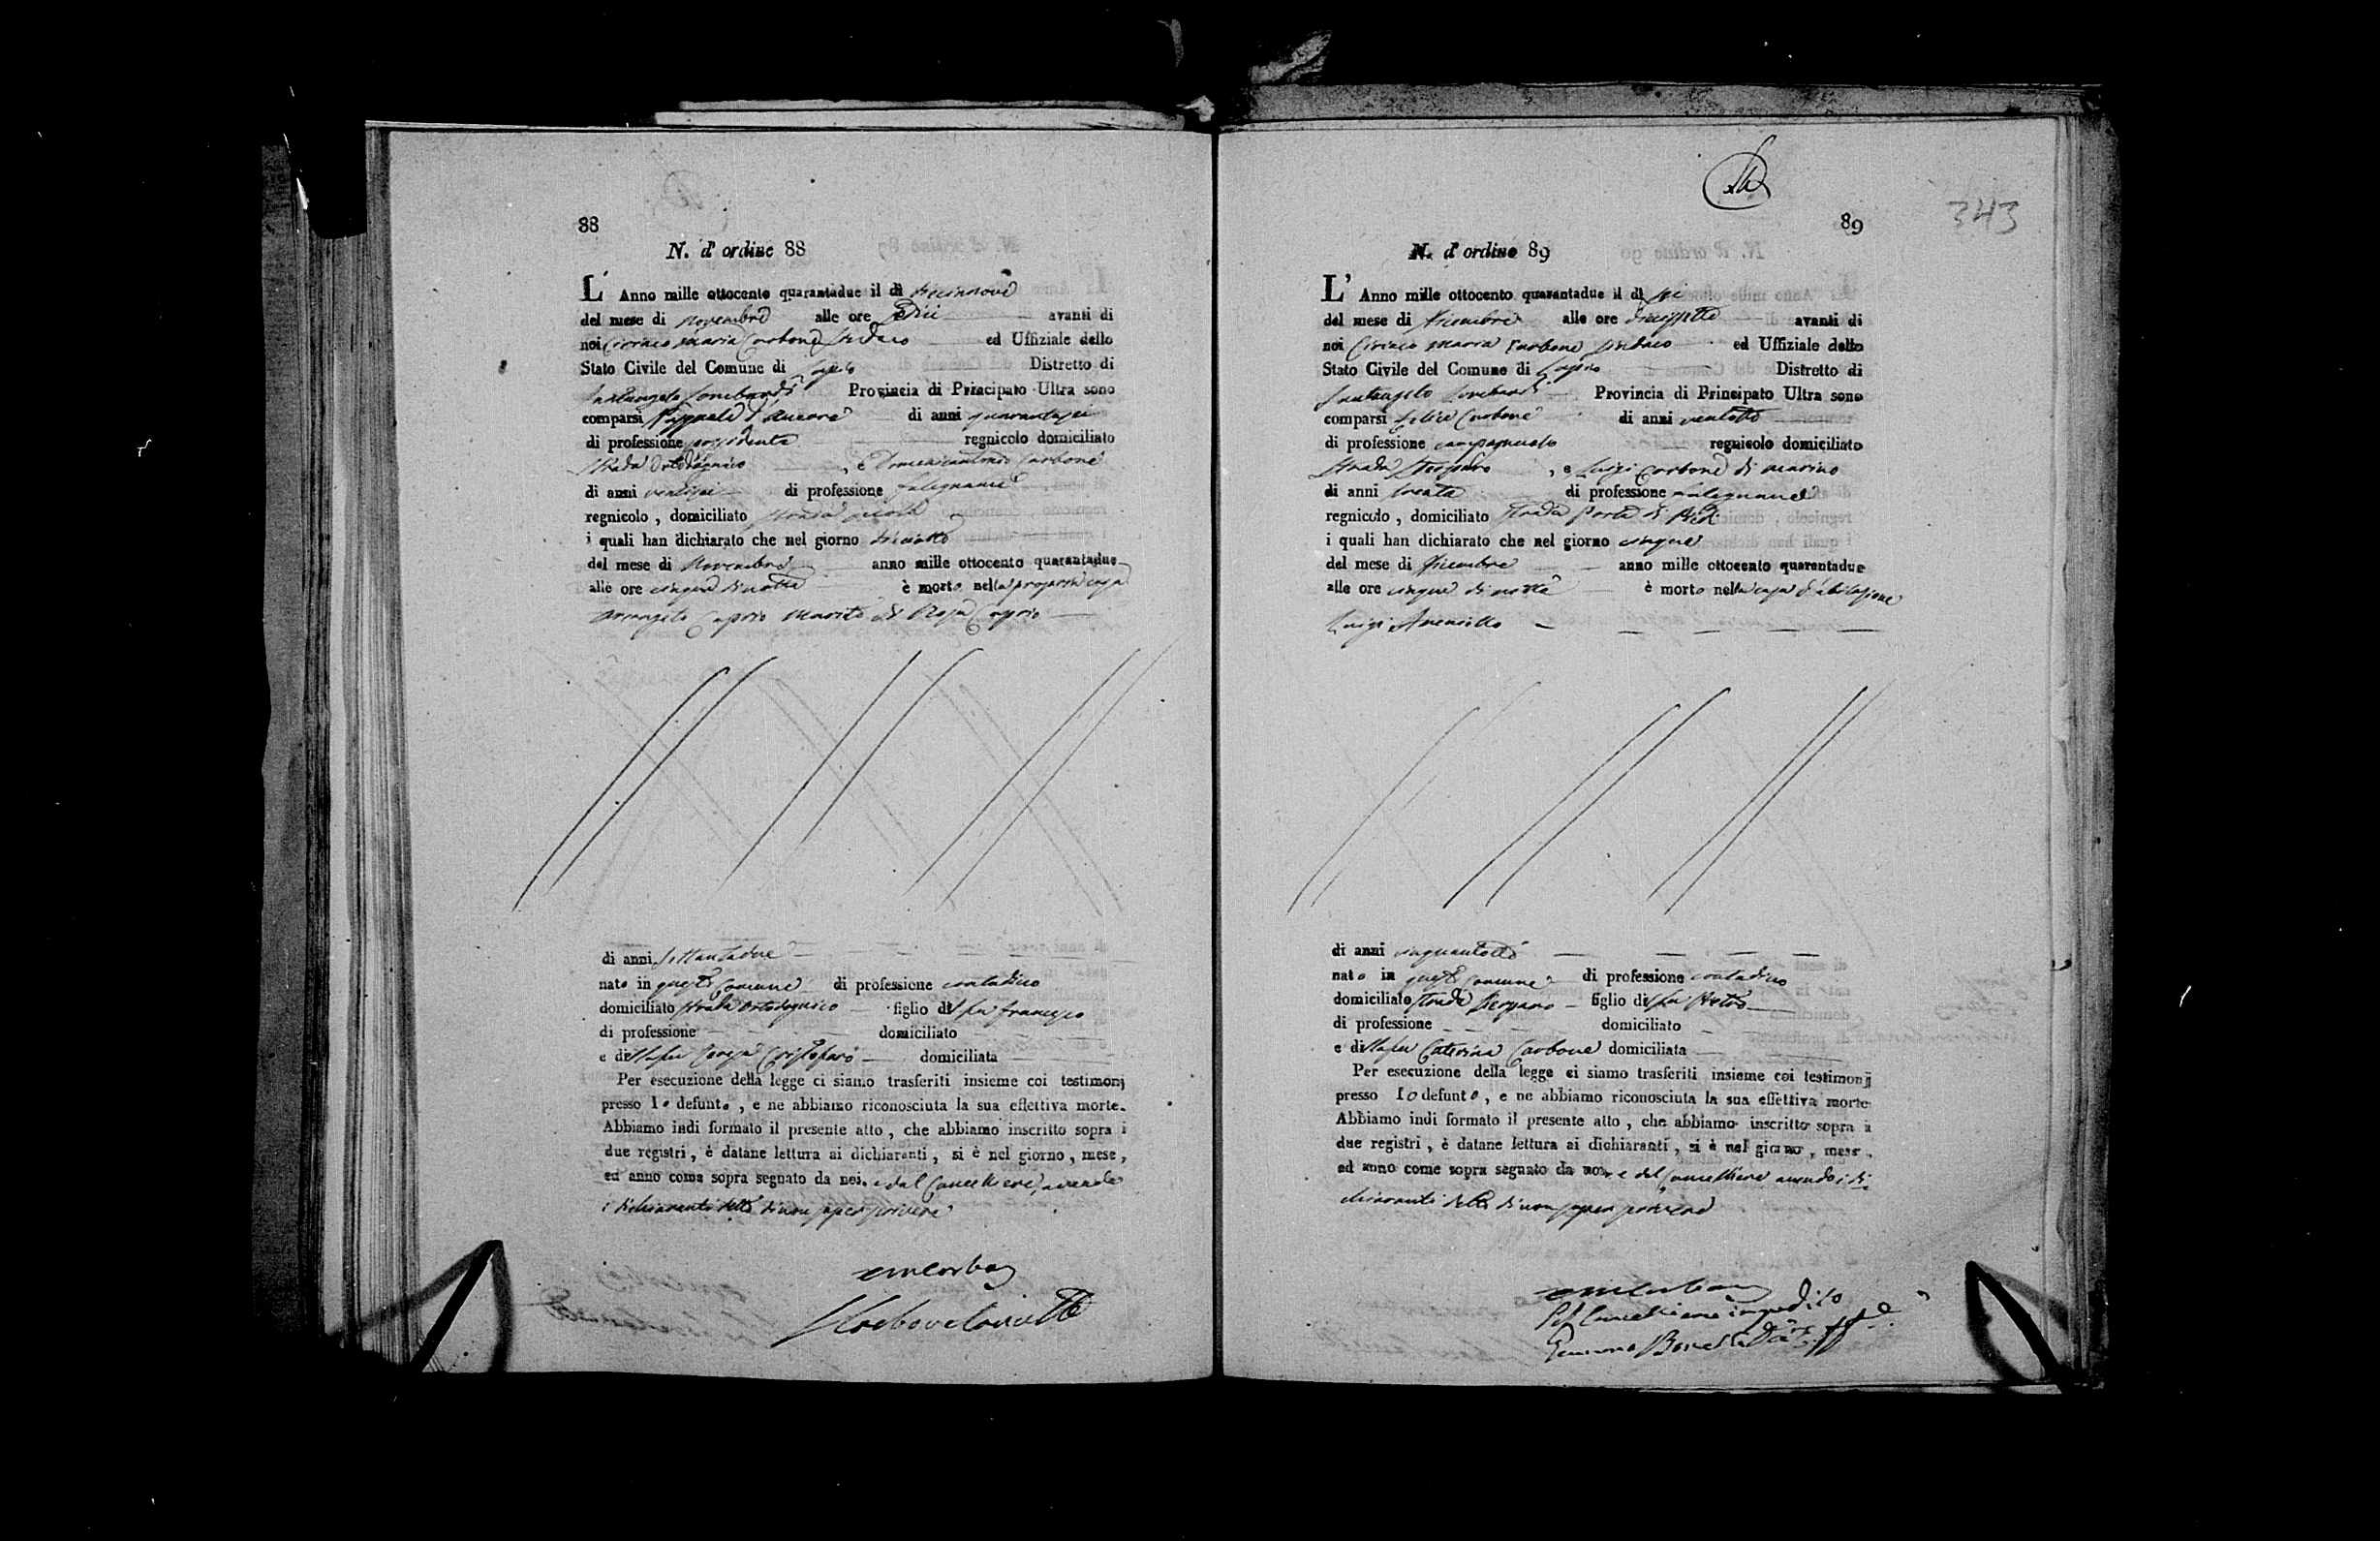 88
N. d' ordine 88
L' Anno mille ottocento quarantadue il dì diecinnove
del mese di Novembre alle ore sedici avanti di
noi Ciriaco Maria Carbone Sindaco ed Uffiziale dello
Stato Civile del Comune di Distretto di
Santangelo Lombardi Provincia di Principato Ultra sono
comparsi Pasquale di anni quarantasei
di professione possidente regnicolo domiciliato
strada , e Domenicantonio Carbone
di anni ventisei di professione falegname
regnicolo , domiciliato strada
i quali han dichiarato che nel giorno dieciotto
del mese di Novembre anno mille ottocento quarantadue
alle ore cinque di notte è morto nella propria casa
Arcangelo Caprio marito di Rosa Caprio
di anni settantadue
nato in questo Comune di professione contadino
domiciliato strada figlio del fu Francesco
di professione domiciliato
e della fu Teresa Cristofaro domiciliata
Per esecuzione della legge ci siamo trasferiti insieme coi testimonj
presso lo defunto , e ne abbiamo riconosciuta la sua effettiva morte.
Abbiamo indi formato il presente atto , che abbiamo inscritto sopra i
due registri , è datane lettura ai dichiaranti , si è nel giorno , mese ,
ed anno come sopra segnato da noi. e dal Cancelliere, avendo
i dichiaranti detto di non saper scrivere
89
343
N. d' ordine 89
L' Anno mille ottocento quarantadue il dì sei
del mese di Dicembre alle ore diecissette avanti di
noi Ciriaco Maria Carbone Sindaco ed Uffiziale dello
Stato Civile del Comune di Distretto di
Santangelo Lombardi Provincia di Principato Ultra sono
comparsi Felice Carbone di anni ventotto
di professione campagnuolo regnicolo domiciliato
strada , e Luigi Carbone di Marino
di anni trenta di professione falegname
regnicolo , domiciliato strada Porta di
i quali han dichiarato che nel giorno cinque
del mese di Dicembre anno mille ottocento quarantadue
alle ore cinque di notte è morto nella casa d'abitazione
Luigi
di anni cinquantotto
nato in questo Comune di professione contadino
domiciliato strada figlio del fu
di professione domiciliato
e della fu Caterina Carbone domiciliata
Per esecuzione della legge ci siamo trasferiti insieme coi testimonj
presso lo defunto , e ne abbiamo riconosciuta la sua effettiva morte
Abbiamo indi formato il presente atto , che abbiamo inscritto sopra i
due registri , è datane lettura ai dichiaranti , si è nel giorno , mese ,
ed anno come sopra segnato da noi. e dal Cancelliere avendo i di-
chiaranti detto di non saper scrivere
Pel Cancelliere impedito